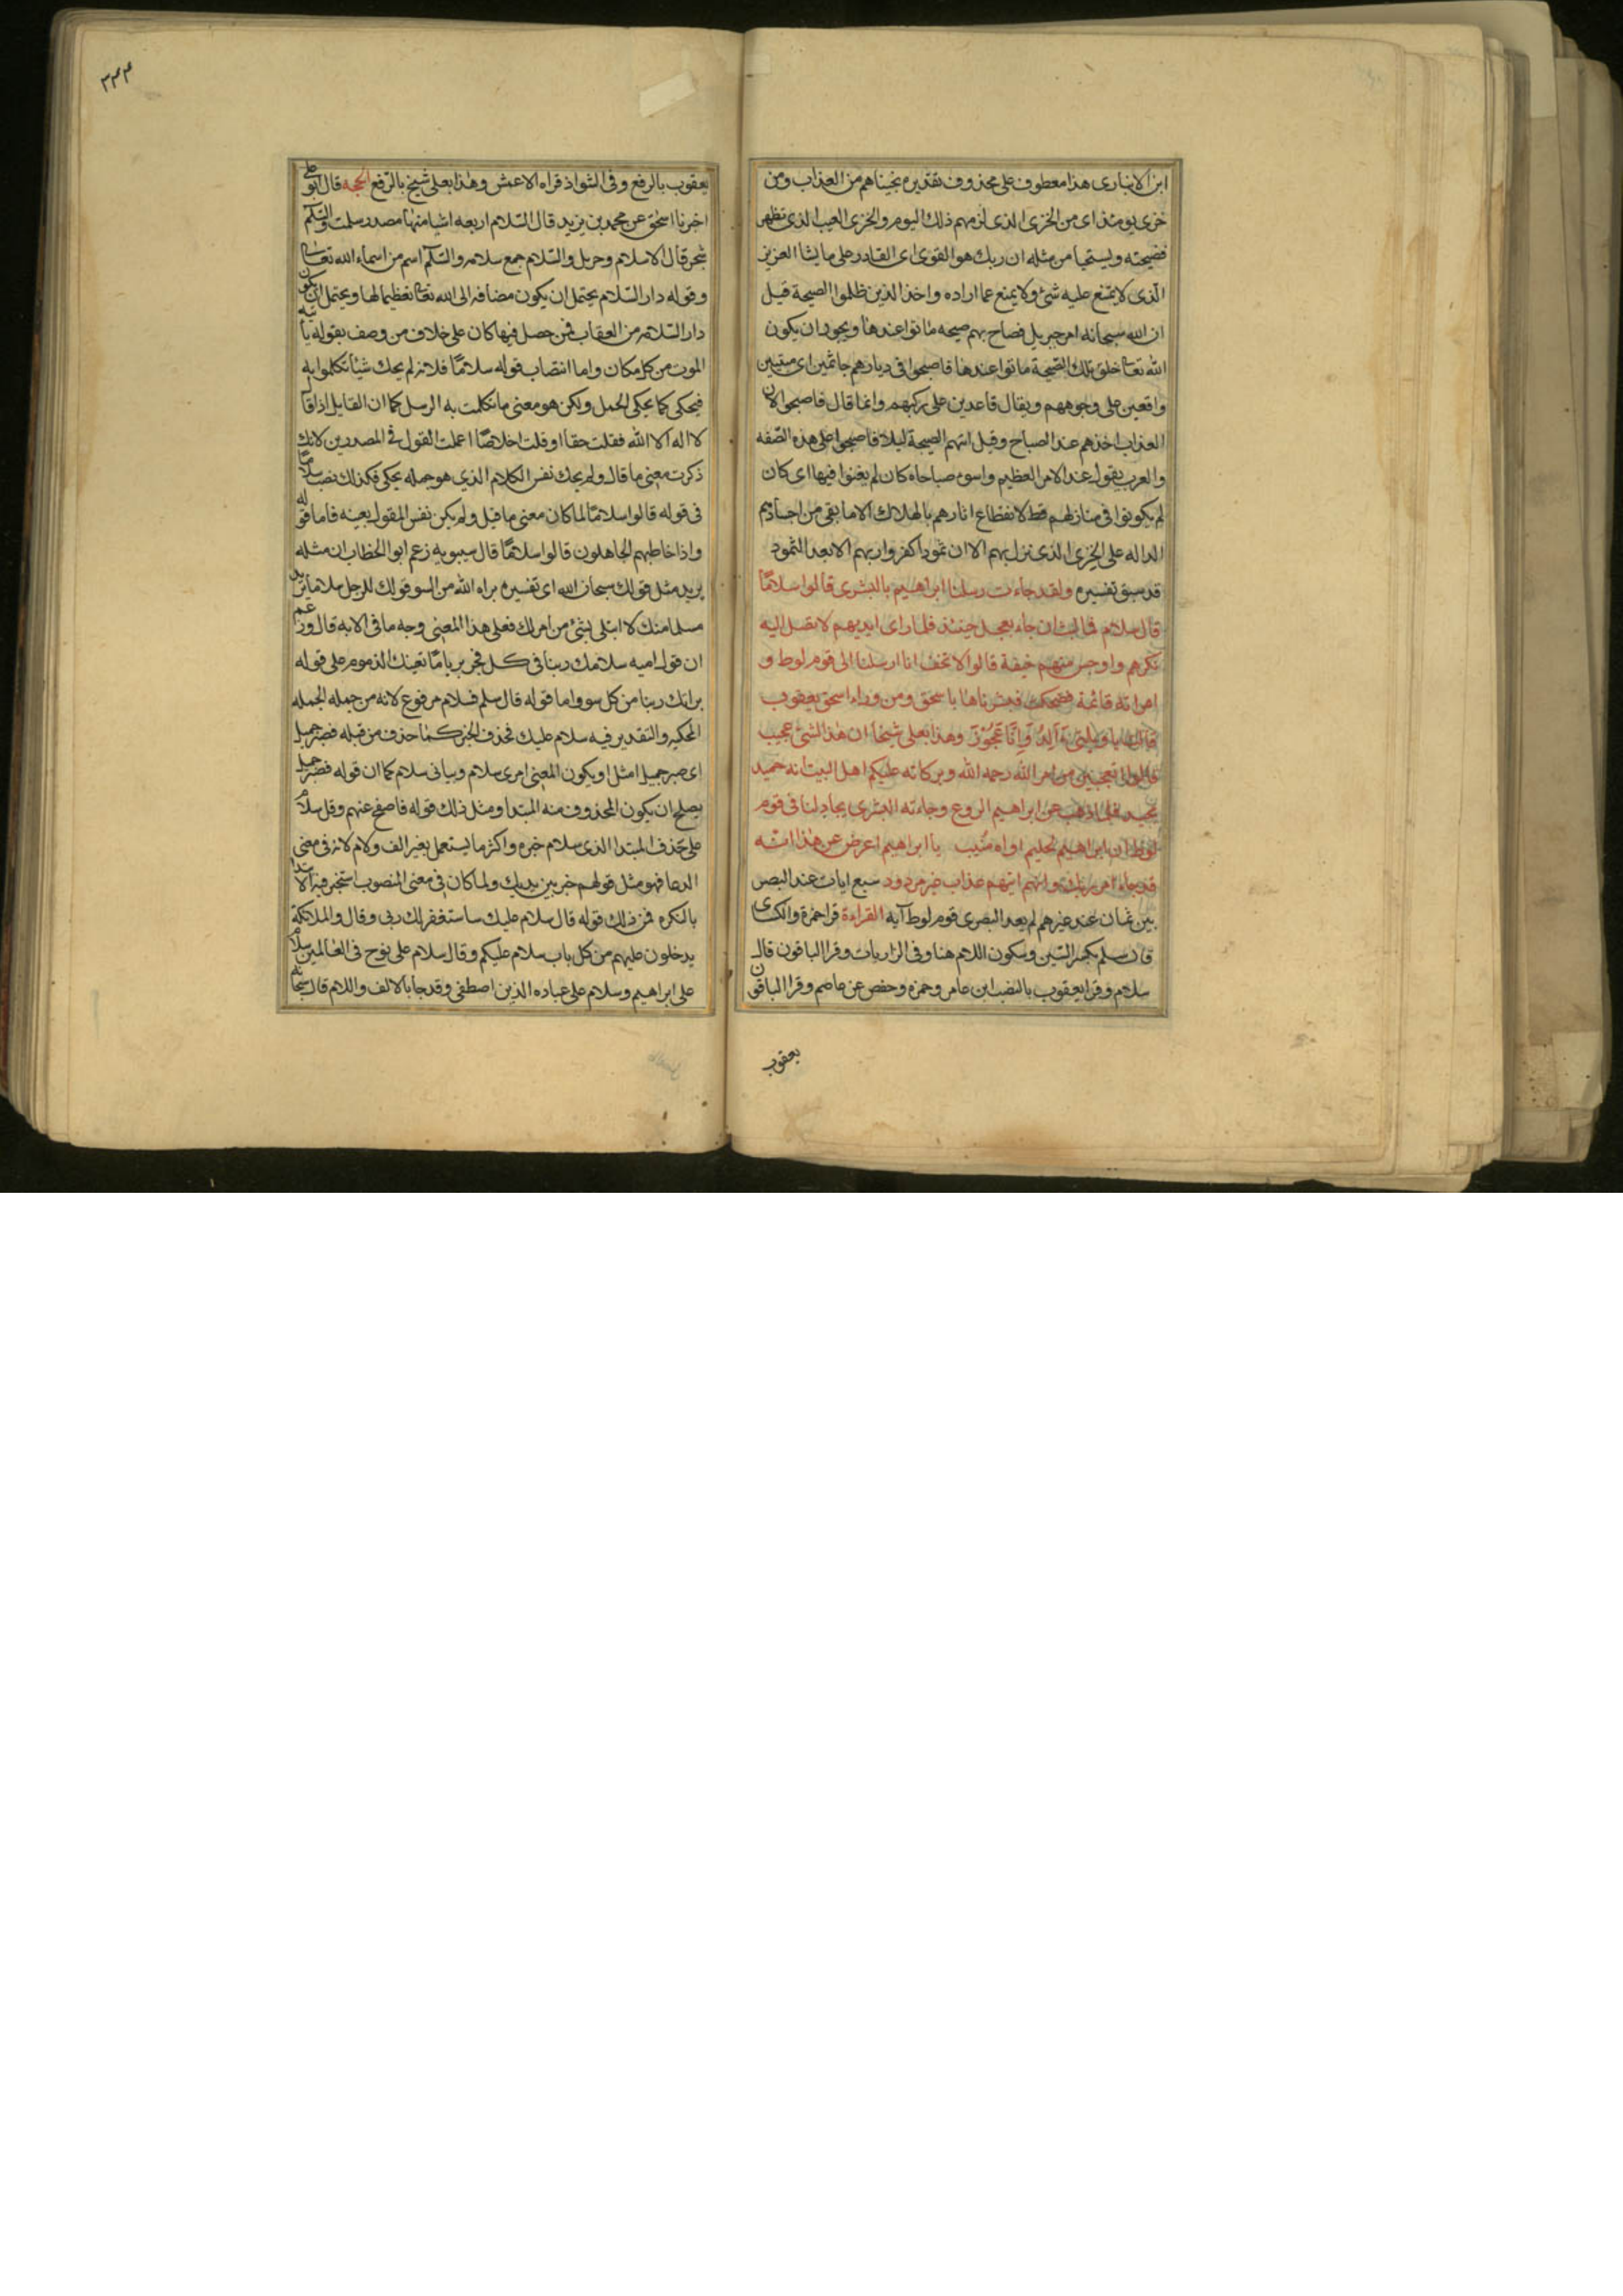 ابن الانبارى هذا معطوف على محذوف تقديره نجيناهم من العذاب ومن
خزى يومئذ اى من الخزى الذى لزمهم ذلك اليوم والخزى العيب الذى تظهر
فضيحته ويستحيا من مثله ان ربك هو القوى اى القادر على ما يشا العزيز
الذى لا يمتنع عليه شئ ولا يمنع عما اراده واخذ الذين ظلموا الصيحة قيل
ان الله سبحانه امر جبريل فصاح بهم صيحه ماتوا عندها ويجوز ان يكون
الله تعا خلق تلك الصيحة ماتوا عندها فاصبحوا فى ديارهم جاثمين اى ميتين
واقعين على وجوههم ويقال قاعدين على ركبهم وانما قال فاصبحوا لان
العذاب اخذهم عند الصباح وقيل اتتهم الصيحة ليلا فاصبحوا على هذه الصفه
والعرب يقول عند الامر العظيم واسوء صباحاه كان لم يغنوا فيها اى كان
لم يكونوا فى منازلهم قط لانقطاع اثارهم بالهلاك الا ما بقى من اجسادهم
الداله على الخزى الذى نزل بهم الا ان ثمودا كفروا ربهم الا بعدا لثمود
قد سبق تفسيره ولقد جاءت رسلنا ابراهيم بالبشرى قالوا سلاما
قال سلام فما لبث ان جاء بعجل حنيذ فلما راى ايديهم لا تصل اليه
نكرهم واوجس منهم خيفة قالوا لا تخف انا ارسلنا الى قوم لوط و
امراته قائمة فضحكت فبشرناها باسحق ومن وراء اسحق يعقوب
قالت يا ويلتى ءآلد وانا عجوز وهذا بعلى شيخا ان هذا لشئ عجيب
قالوا اتعجبين من امر الله رحمه الله وبركاته عليكم اهل البيت انه حميد
مجيد فلما ذهب عن ابراهيم الروع وجاءته البشرى يجادلنا فى قوم
لوط ان ابراهيم لحليم اواه منيب يا ابراهيم اعرض عن هذا انه
قد جاء امر ربك وانهم اتيهم عذاب غير مردود سبع ايات عند البصر
يين ثمان عند غيرهم لم يعد البصرى قوم لوط آية القراءة قرا حمزة والكساى
قال سلم بكسر السين وسكون اللام هنا وفى الذاريات وقرا الباقون قال
سلام وقرا يعقوب بالنصب ابن عامر وحمزه وحفص عن عاصم وقرا الباقون
يعقوب
٣٣٣
يعقوب بالرفع وفى الشواذ قراه الاعمش وهذا بعلى شيخ بالرفع الحجه قال ابو على
اخبرنا اسحق عن محمد بن يزيد قال السلام اربعه اشيا منها مصدر سلمت والسلام
شجر قال الا سلام وحرمل والسلام جمع سلامه والسلام اسم من اسماء الله تعا
وقوله دار السلام يحتمل ان يكون مضافه الى الله تعا تعظيما لها ويحتمل ان يكون
دار السلامه من العقاب فمن حصل فيها كان على خلاف من وصف بقوله ياتيه
الموت من كل مكان واما انتصاب قوله سلاما فلانه لم يحك شيأ تكلموا به
فيحكى كما يحكى الجمل ولكن هو معنى ما تكلمت به الرسل كما ان القايل اذا قال
لا اله الا الله فقلت حقا او قلت اخلاصا اعملت القول فى المصدرين لانك
ذكرت معنى ما قال ولم يحك نفس الكلام الذي هو جمله يحكى فكذلك نصب سلاما
فى قوله قالوا سلاما لما كان معنى ما قيل ولم يكن نفس المقول بعينه فاما قوله
واذا خاطبهم الجاهلون قالوا سلاما قال سيبويه زعم ابو الخطاب ان مثله
يريد مثل قولك سبحان الله اى تفسيره براه الله من السو قولك للرجل سلاما تريد
مسلما منك لا ابتلى بشئ من امرك فعلى هذا المعنى وجه ما فى الايه قال وزعم
ان قول اميه سلامك ربنا فى كل فجر بريا ما تعينك الذموم على قوله
براتك ربنا من كل سو واما قوله قال سلم فسلام مرفوع لانه من جمله الجمله
المحكيه والتقدير فيه سلام عليك فحذف الخبر كما حذف من قبله فصبر جميل
اى صبر جميل امثل او يكون المعنى امرى سلام وبيانى سلام كما ان قوله فصبر جميل
يصلح ان يكون المحذوف منه المبتدا ومثل ذلك قوله فاصفح عنهم وقل سلام
على حذف المبتدا الذى سلام خبره واكثر ما يستعمل بغير الف ولام لانه فى معنى
الدعا فهو مثل قولهم خير بين يديك ولما كان فى معنى المنصوب استجر فيه الابتدا
بالنكره فمن ذلك قوله قال سلام عليك ساستغفر لك ربى وقال والملائكة
يدخلون عليهم من كل باب سلام عليكم وقال سلام على نوح فى العالمين سلام
على ابراهيم وسلام على عباده الذين اصطفى وقد جا بالالف واللام قال سبحانه